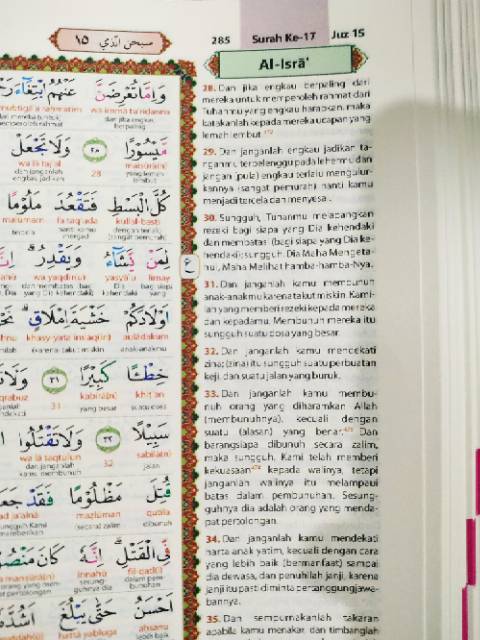 سبحن الّذي ١٥
285 Surah Ke-17 Juz 15
Al-Isrā'
28. Dan jika engkau berpaling dari
mereka untuk memperoleh rahmat dari
Tuhanmu yang engkau harapkan, maka
katakanlah kepada mereka ucapan yang
lemah lembut.
29. Dan janganlah engkau jadikan ta-
nganmu terbelenggu pada lehermu dan
jangan (pula) engkau terlalu mengulur-
kannya (sangat pemurah) nanti kamu
menjadi tercela dan menyesal.
30. Sungguh, Tuhanmu melapangkan
rezeki bagi siapa yang Dia kehendaki
dan membatasi (bagi siapa yang Dia ke-
hendaki); sungguh, Dia Maha Mengeta-
hui, Maha Melihat hamba-hamba-Nya.
31. Dan janganlah kamu membunuh
anak-anakmu karena takut miskin. Kami-
lah yang memberi rezeki kepada mereka
dan kepadamu. Membunuh mereka itu
sungguh suatu dosa yang besar.
32. Dan janganlah kamu mendekati
zina; (zina) itu sungguh suatu perbuatan
keji, dan suatu jalan yang buruk.
33. Dan janganlah kamu membu-
nuh orang yang diharamkan Allah
(membunuhnya), kecuali dengan
suatu (alasan) yang benar. Dan
barangsiapa dibunuh secara zalim,
maka sungguh, Kami telah memberi
kekuasaan kepada walinya, tetapi
janganlah walinya itu melampaui
batas dalam pembunuhan. Sesung-
guhnya dia adalah orang yang menda-
pat pertolongan.
34. Dan janganlah kamu mendekati
harta anak yatim, kecuali dengan cara
yang lebih baik (bermanfaat) sampai
dia dewasa, dan penuhilah janji, karena
janji itu pasti diminta pertanggungjawa-
bannya.
35. Dan sempurnakanlah takaran
apabila kamu menakar, dan timbanglah
وَاِمَّا تُعْرِضَنَّ عَنْهُمُ ابْتِغَاۤءَ
wa immā tu'riḍanna
dan jika engkau
berpaling
مَّيْسُوْرًا ٢٨ وَلَا تَجْعَلْ
maisūrā(n) 28 wa lā taj'al
yang lemah
lembut
dan janganlah
engkau jadikan
كُلَّ الْبَسْطِ فَتَقْعُدَ مَلُوْمًا
kullal-basṭi fa taq'uda malūmam
nanti kamu
menjadi
tercela
لِمَنْ يَّشَاۤءُ وَيَقْدِرُ
limay yasyā'u wa yaqdir
bagi siapa
اَوْلَادَكُمْ خَشْيَةَ اِمْلَاقٍ
aulādakum khasy-yata imlāq(in)
anak-anakmu (karena) takut miskin
خِطْـًٔا كَبِيْرًا ٣١
khiṭ'an kabīrā(n) 31
suatu dosa yang besar
سَبِيْلًا ٣٢ وَلَا تَقْتُلُوا
sabīlā(n) 32 wa lā taqtulun
jalan
dan janganlah
kamu membunuh
قُتِلَ مَظْلُوْمًا فَقَدْ
qutila maẓlūman
dibunuh (secara) zalim
فِّى الْقَتْلِ اِنَّهٗ كَانَ
fil-qatl(i) innahū
dalam pem-
bunuhan
sesung-
guhnya dia
اَحْسَنُ حَتّٰى يَبْلُغَ اَشُدَّهٗ
aḥsanu ḥattā yabluga